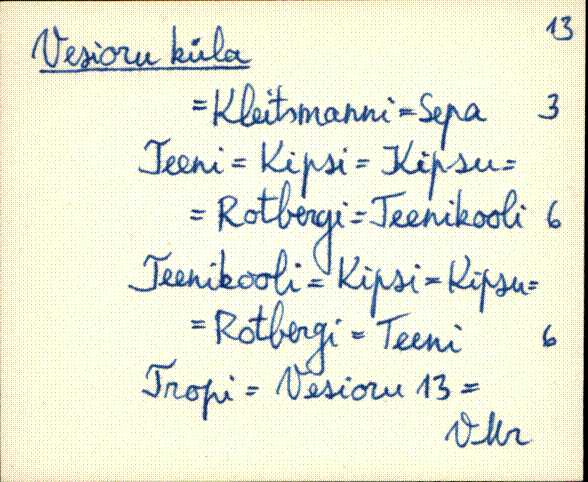 13
Vesioru küla
= Kleitsmanni = Sepa 3
Teeni = Kipsi = Kipsu =
= Rotbergi = Teenikooli 6
Teenikooli = Kipsi = Kipsu =
= Rotbergi = Teeni 6
Tropi = Vesioru 13 =
VKr